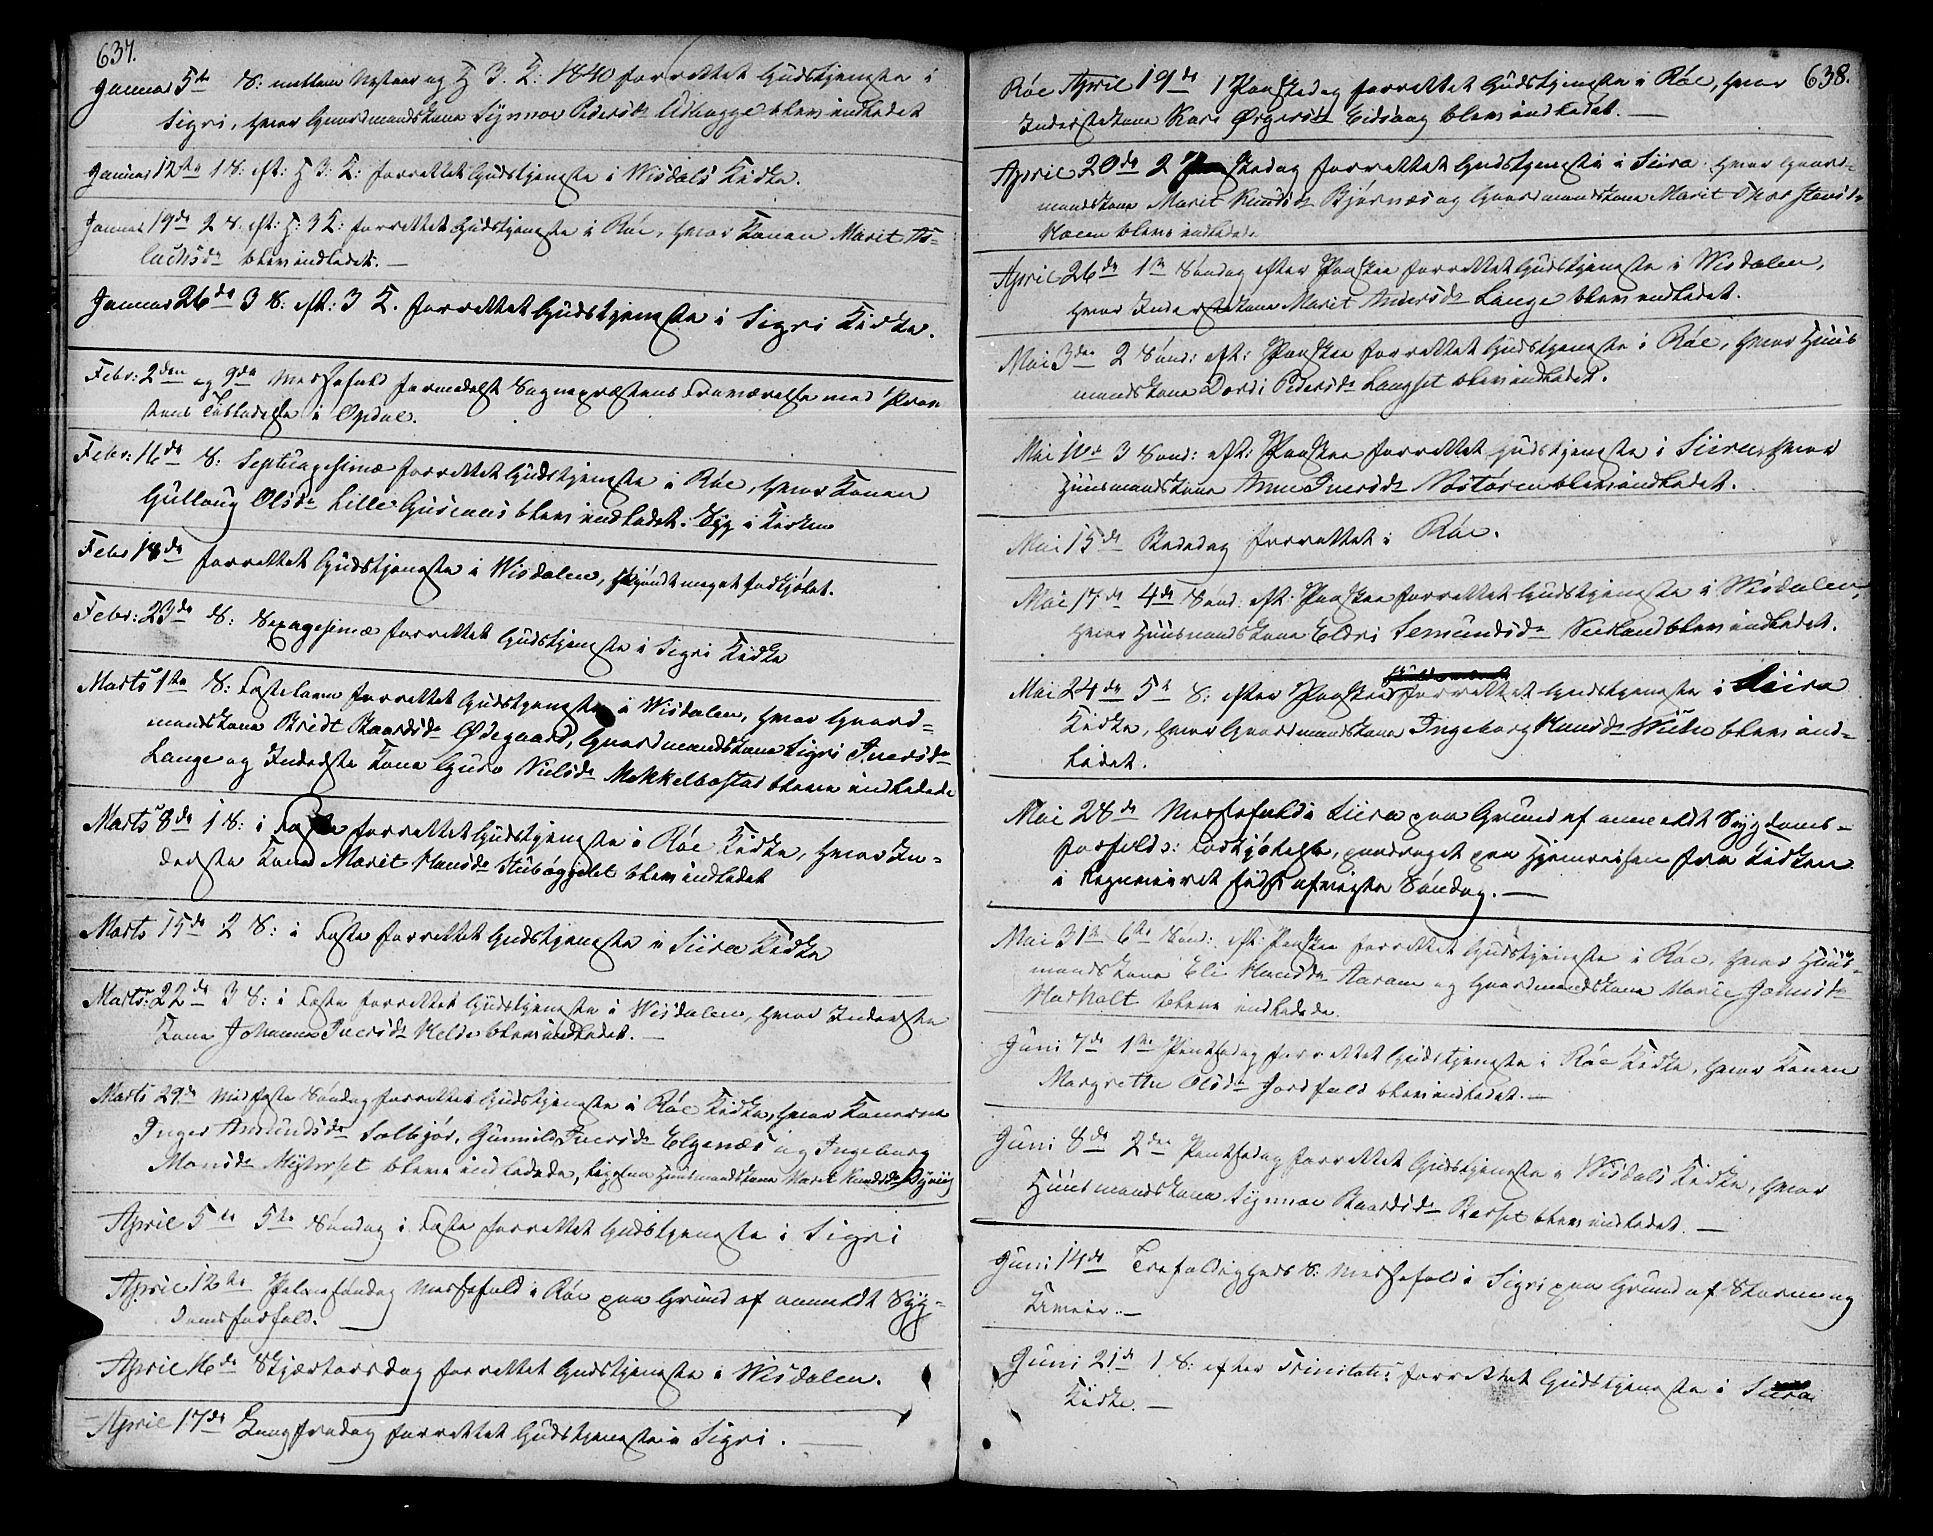 637.
Januar 5te S: mellem Nytaar og H 3. K: 1840 forrettet Gudstjeneste i
Sigri, hvor Gaardmandskone Synnove Pedersd: Udhugge blev indledet
Januar 12te 1 S: eft: H 3 K: forrettet Gudstjeneste i Wisdals Kirke.
Januar 19de 2 S. eft: H: 3 K: forrettet Gudstjeneste i Röe, hvor Konen Marit As-
lachsd: blev indledet. —
Januar 26de 3 S: eft: 3 K. forrettet Gudstjeneste i Sigri Kirke.
Febr: 2den og 9de Messefald formedelst Sognepræstens Fraværelse med
i Opdal.
Febr: 16de S: Septuagesimæ forrettet Gudstjeneste i Röe, hvor Konen
Gullaug Olsd: Lille blev indledet. Syg i Kirken
Febr 18de forrettet Gudstjeneste i Wisdalen, skjöndt meget forkjölet.
Febr: 23de S: Sexagesimæ forrettet Gudstjeneste i Sigri Kirke
Marts 1te S: Fastelavn forrettet Gudstjeneste i Wisdalen, hvor Gaard-
mandskone Bridt Baardsd: Ødegaard, Gaardmandskone Sigri Iversd:
Lange og Inderste Kone Guro Nielsd: Mekkelbostad bleve indledede
Marts 8de 1 S: i Faste forrettet Gudstjeneste i Röe Kirke, hvor In-
derste Kone Marit Hansd: Stubögjelet blev indledet
Marts 15de 2 S: i Faste forrettet Gudstjeneste i Siira Kirke
Marts: 22de 3 S: i Faste forrettet Gudstjeneste i Wisdalen, hvor Inderste
Kone Johanna Iversd: Helde blev indledet. —
Marts 29de Midfaste Söndag forrettet Gudstjeneste i Röe Kirke, hvor Konerne
Inger Amundsd: Solbjör, Gunnild Iversd: Elgenæs og Ingeborg
Monsd: bleve indledede, ligesaa Huusmandskone Marit Knudsd:
April 5te 5te Söndag i Faste forrettet Gudstjeneste i Sigri
April 12te Palmesöndag Messefald i Röe paa Grund af anmeldt Syg-
domsforfald.
April 16de Skjærtorsdag forrettet Gudstjeneste i Wisdalen.
April 17de Langfredag forrettet Gudstjeneste i Sigri. —
638.
Röe April 19de 1 Paaskedag forrettet Gudstjeneste i Röe, hvor
Inderstekone Kari Ørgersd: Eidsvaag blev indledet. —
April 20de 2 Paaskedag forrettet Gudstjeneste i Siira. hvor Gaard-
mandskone Marit Knudsd: Bjørnæs og Gaardmandskone Marit Thorstensd:
Hoem bleve indledede
April 26de 1te Söndag efter Paaske forrettet Gudstjeneste i Wisdalen,
hvor Inderstekone Marit Andersd: Lange blev indledet.
Mai 3die 2 Sönd: eft: Paaske forrettet Gudstjeneste i Röe, hvor Huus
mandskone Dordi Pedersd: Langset blev indledet.
Mai 10de 3 Sönd: eft: Paaske forrettet Gudstjeneste i Siira, hvor
Huusmandskone Anne Iversd: Nöstören blev indledet.
Mai 15de Bededag forrettet i Röe.
Mai 17de 4de Sönd: eft: Paaske forrettet Gudstjeneste i Wisdalen,
hvor Huusmandskone Eldri Semundsd: blev indledet.
Mai 24de 5te S: efter Paaske forrettet Gudstjeneste i Siira
Kirke, hvor Gaardmandskone Ingeborg Hansd: blev ind-
ledet.
Mai 28de Messefald i Siira paa Grund af anmeldt Sygdoms-
forfald: Forkjølelse, paadraget paa Hjemreisen fra Kirken
i Regnveiret sidst afvigte Söndag. —
Mai 31te 6te Sönd: eft: Paaske forrettet Gudstjeneste i Röe, hvor Huus-
mandskone Eli Hansd: Aaram og Gaardmandskone Marie Johnsd:
Harhalt bleve indledede.
Juni 7de 1te Pintsedag forrettet Gudstjeneste i Röe Kirke, hvor Konen
Margrethe Olsd: Jordfald blev indledet. —
Juni 8de 2den Pintsedag forrettet Gudstjeneste i Wisdals Kirke, hvor
Huusmandskone Synnove Baardsd: Berset blev indledet. —
Juni 14de Trefoldigheds S: Messefald i Sigri paa Grund af Storm og
—
Juni 21de 1 S: efter Trinitatis forrettet Gudstjeneste i Siira
Kirke. —